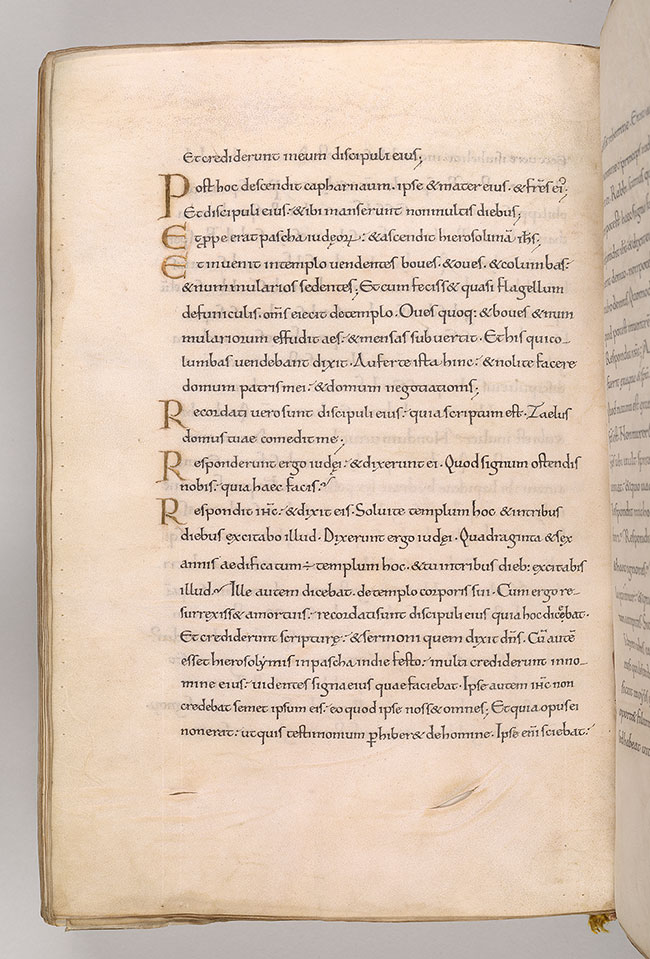 Et crediderunt in eum discipuli eius;
Post hoc descendit capharnaum. ipse & mater eius. & frēs ei᾽.
Et discipuli eius: & ibi manserunt non multis diebus;
Et ꝓpe erat pascha iudęoꝝ: & ascendit hierosolimā ih̄s;
Et invenit in templo vendentes boves. & oves. & columbas:
& nummularios sedentes; Et cum feciss& quasi flagellum
de funiculis. om̄s eiecit de templo. Oves quoq; & boves & num
mulariorum effudit aes: & mensas subvertit. Et his qui co-
lumbas vendebant dixit. Auferte ista hinc: & nolite facere
domum patris mei: & domum negotiationis;
Recordati vero sunt discipuli eius: quia scriptum est. Zaelus
domus tuae comedit me;
Responderunt ergo iudęi: & dixerunt ei. Quod signum ostendis
nobis: quia haec facis?
Respondit ih̄c: & dixit eis. Solvite templum hoc & in tribus
diebus excitabo illud. Dixerunt ergo iudęi. Quadraginta & sex
annis aedificatum÷ templum hoc. & tu in tribus dieb; excitabis
illud? Ille autem dicebat. de templo corporis sui. Cum ergo re-
surrexiss& a mortuis: recordati sunt discipuli eius quia hoc dicebat.
Et crediderunt scripturę: & sermoni quem dixit dn̄s. Cū autē
esset hierosolymis in pascha in die festo: multi crediderunt in no-
mine eius: videntes signa eius quae faciebat. Ipse autem ih̄c non
credebat semet ipsum eis: eo quod ipse noss& omnes; Et quia opus ei
non erat: ut quis testimonium ꝑhiber& de homine. Ipse em̄ sciebat: